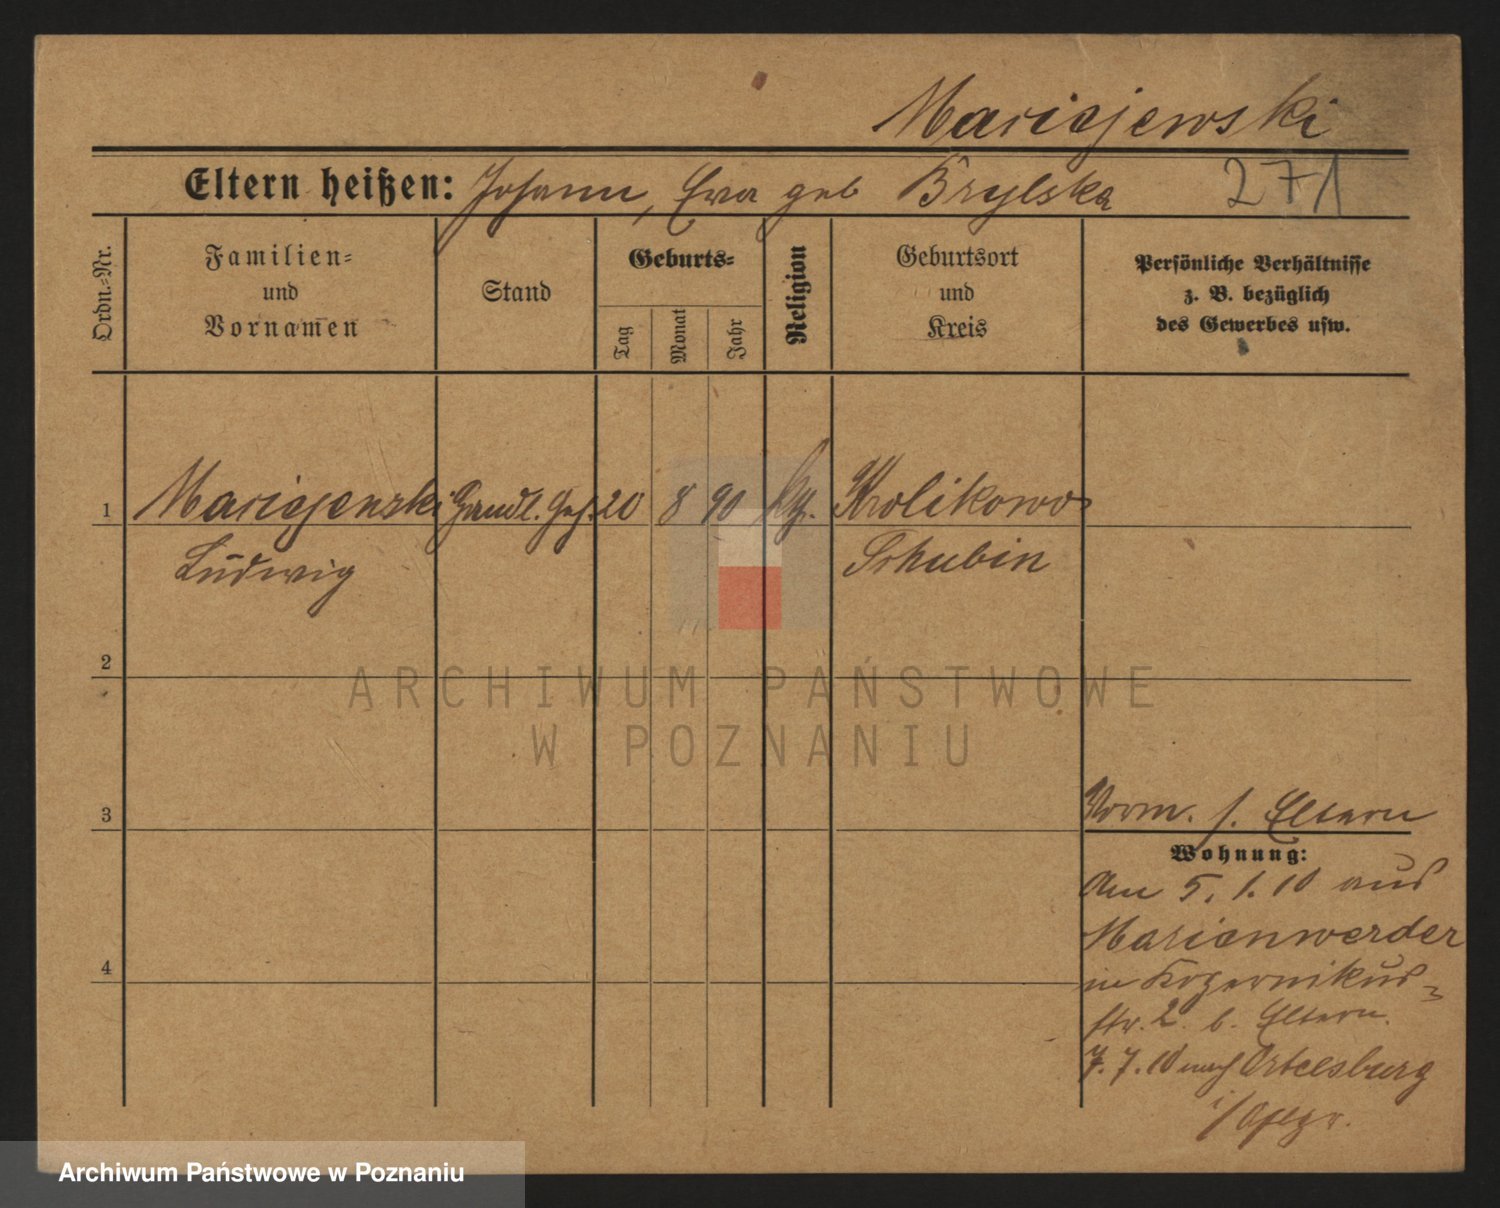 Maciejewski
Eltern heißen: Johann, Eva geb Brylska
271
Ordn.-Nr.
Familien-
und
Vornamen
Stand
Geburts-
Tag
Monat
Jahr
Religion
Geburtsort
und
Kreis
Persönliche Verhältnisse
z. B. bezüglich
des Gewerbes usw.
1 Maciejewski Handl. Geh. 20 8 90 Krolikowo
Ludwig Schubin
2
ARCHIWUM PAŃSTWOWE
W POZNANIU
3
Vorm. s. Eltern
Wohnung:
Am 5. 1. 10 aus
Marienwerder
4
in Kopernikus-
str. 2. b. Eltern.
7. 7. 10 nach Ortelsburg
i/Ostpr.
Archiwum Państwowe w Poznaniu